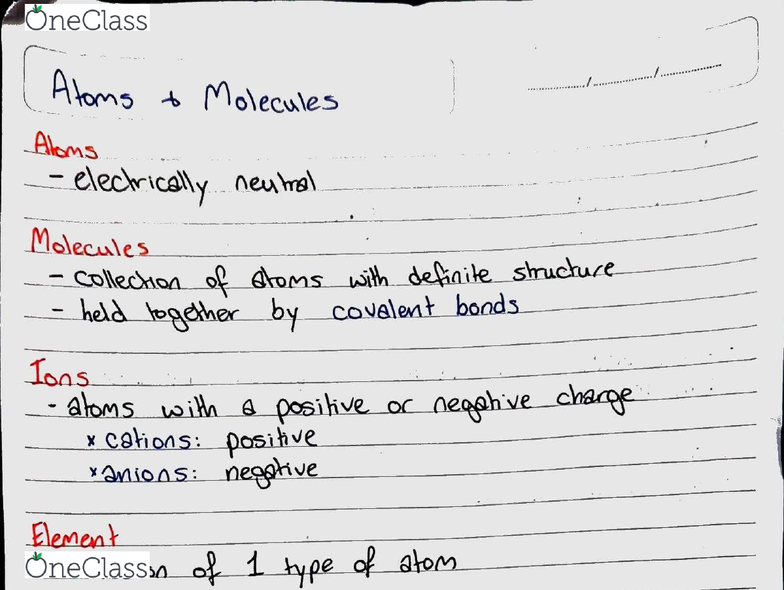 OneClass
Atoms & Molecules
Atoms
- electrically neutral
Molecules
- collection of atoms with definite structure
- held together by covalent bonds
Ions
- atoms with a positive or negative charge
x cations: positive
x anions: negative
Element
OneClass
of 1 type of atom